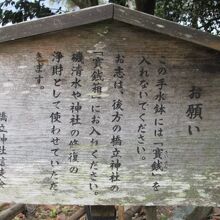 お願い
この手水鉢には「賽銭」を
入れないでください。
お志は、後方の橋立神社の
「賽銭箱」にお入れください。
磯清水や神社の修復の
浄財として使わせていただ
きます。
橋立神社